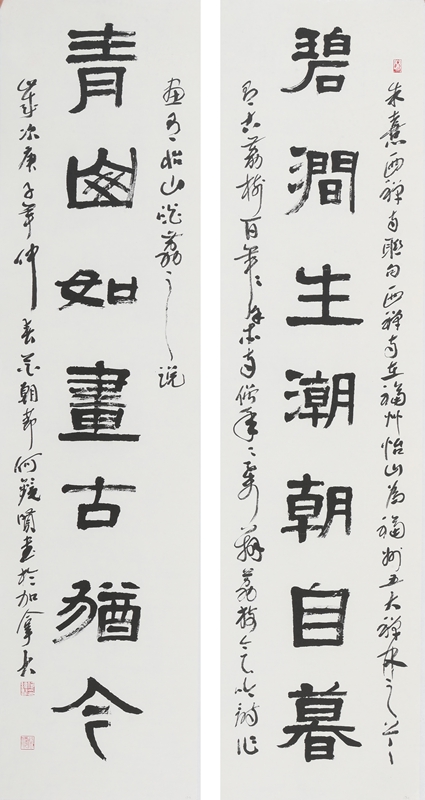 朱熹西禪寺聯句西禪寺在福州怡山為福州五大禪林之一
碧澗生潮朝自暮
荔樹百年
寺僧
荔枝會吟詩作
畫有怡山啖荔之說
青山如畫古猶今
歲次庚子年仲春花朝節何鏡賢書於加拿大